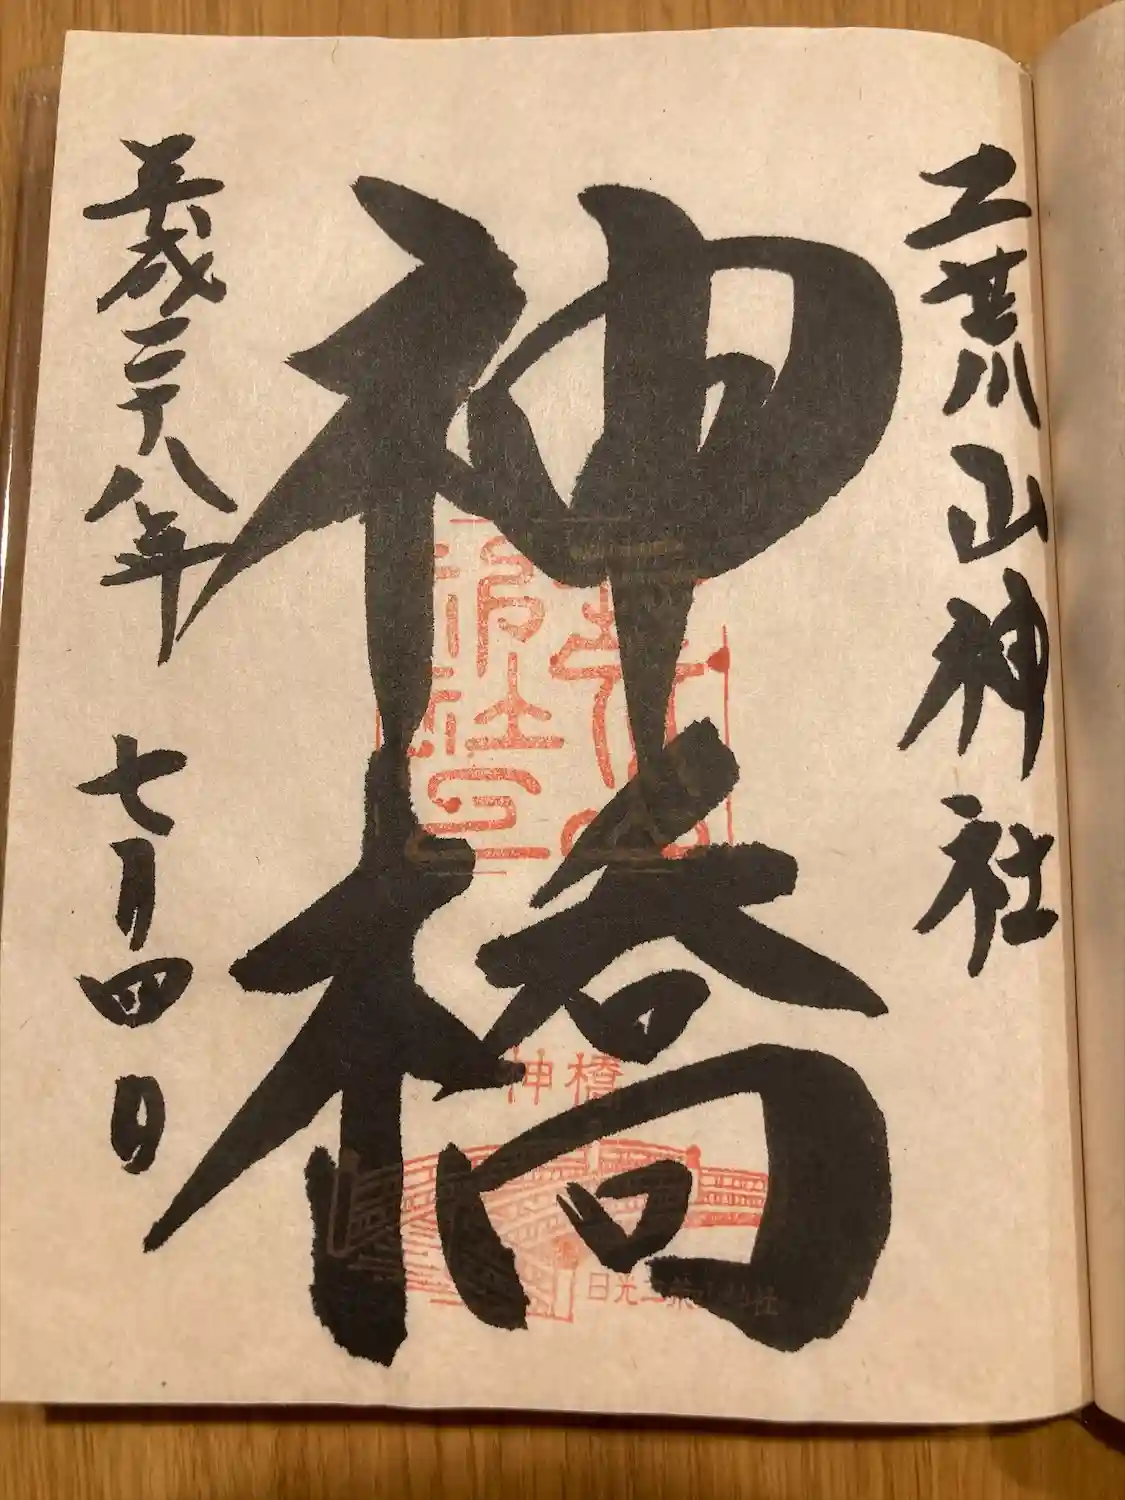 二荒山神社
神橋
平成二十八年 七月四日
神橋
日光二荒山神社